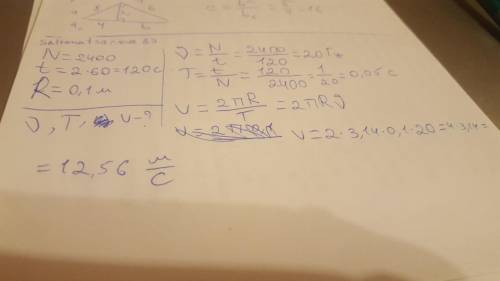 N=2400
t=2·60=120c
R=0,1м
ν, T, v-?
ν=N/t=2400/120=20Гц
T=t/N=120/2400=1/20=0,05c
v=2πR/T=2πRν
v=2·3,14·0,1·20=4·3,14=
=12,56 м/с